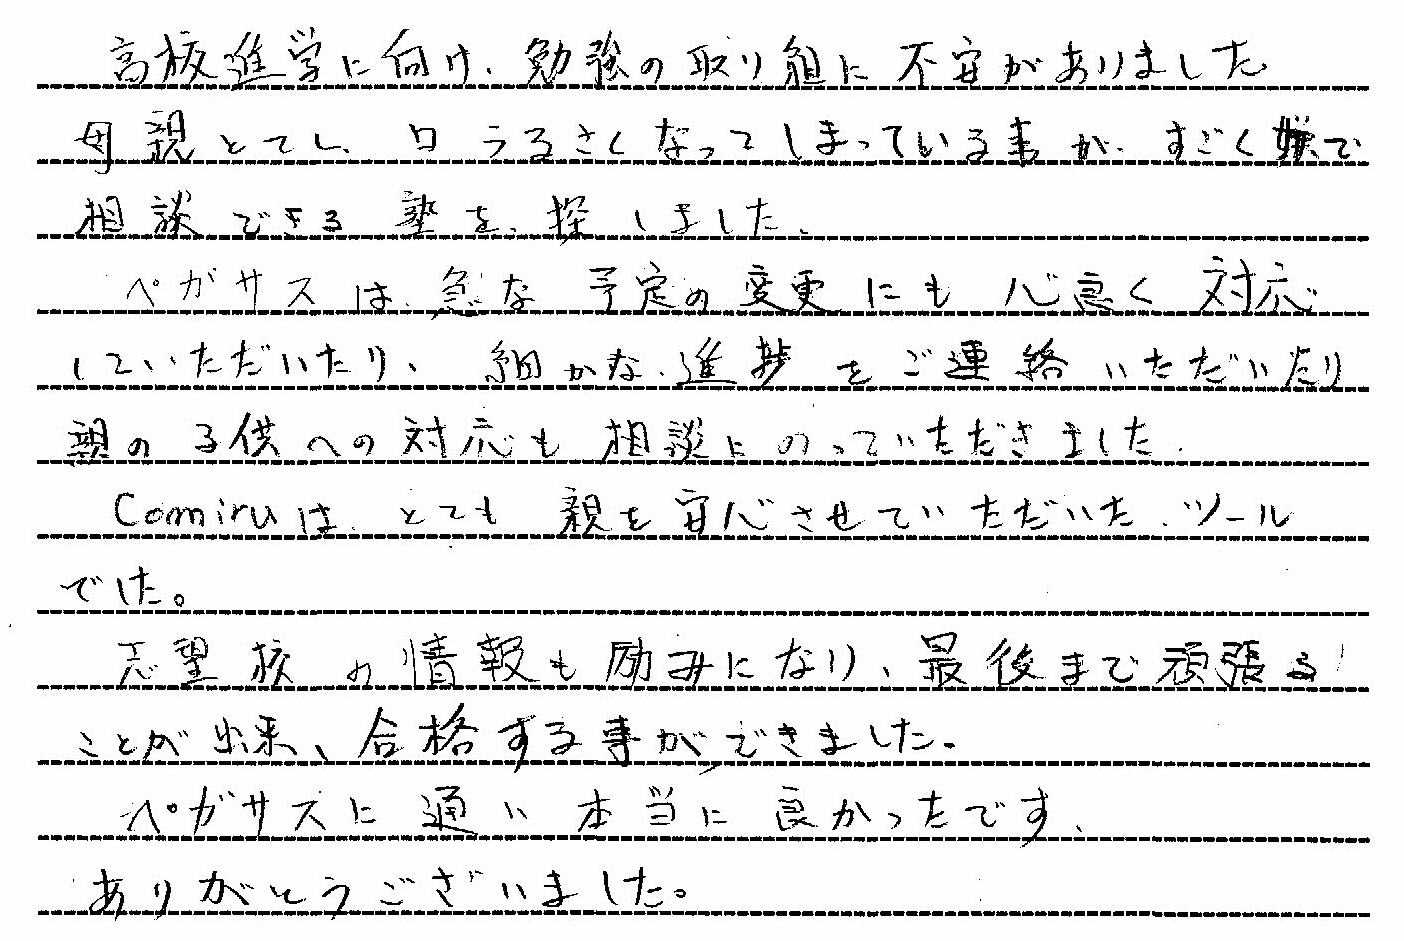 高校進学に向け、勉強の取り組に不安がありました
母親とてし、口うるさくなってしまっている事が、すごく嫌で
相談できる塾を、探しました、
ペガサスは、急な予定の変更にも心良く対応
していただいたり、細かな、進捗をご連絡いただいたり
親の子供への対応も相談にのっていただきました、
Comiruは、とても親を安心させていただいた、ツール
でした。
志望校の情報も励みになり、最後まで頑張る
ことが出来、合格する事ができました。
ペガサスに通い本当に良かったです、
ありがとうございました。